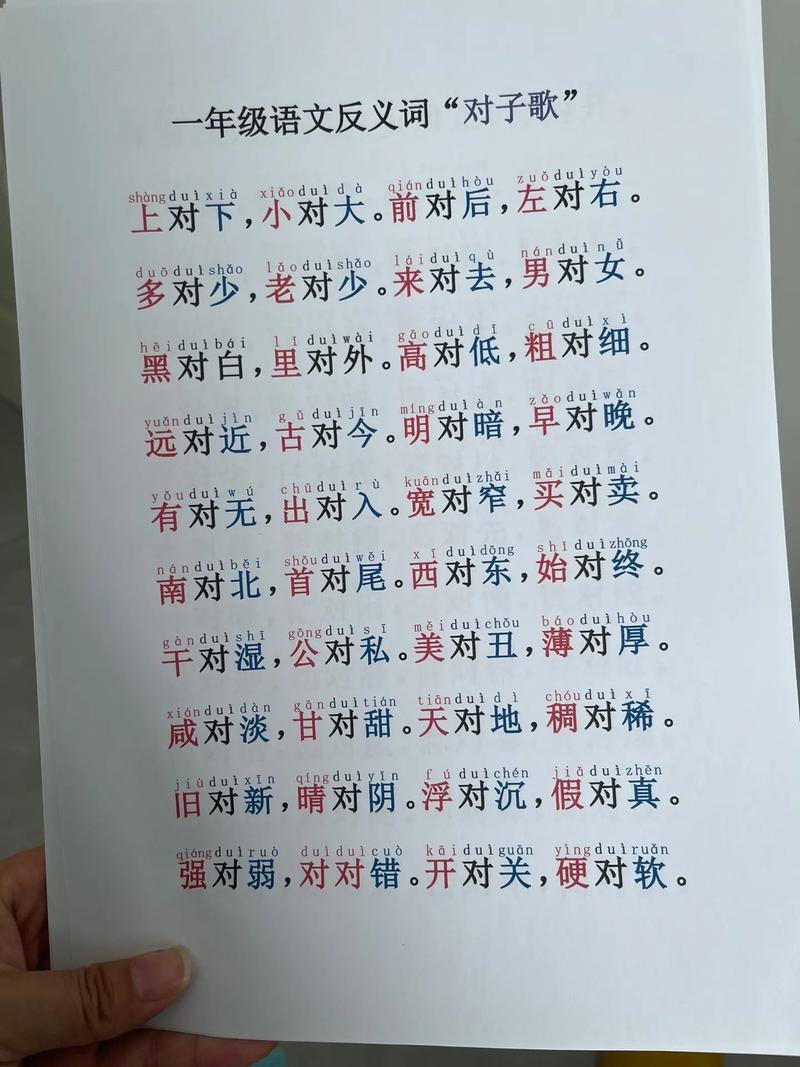 一年级语文反义词“对子歌”
shàng duì xià xiǎo duì dà qián duì hòu zuǒ duì yòu
上对下,小对大。前对后,左对右。
duō duì shǎo lǎo duì shǎo lái duì qù nán duì nǚ
多对少,老对少。来对去,男对女。
hēi duì bái lǐ duì wài gāo duì dī cū duì xì
黑对白,里对外。高对低,粗对细。
yuǎn duì jìn gǔ duì jīn míng duì àn zǎo duì wǎn
远对近,古对今。明对暗,早对晚。
yǒu duì wú chū duì rù kuān duì zhǎi mǎi duì mài
有对无,出对入。宽对窄,买对卖。
nán duì běi shǒu duì wěi xī duì dōng shǐ duì zhōng
南对北,首对尾。西对东,始对终。
gàn duì shī gōng duì sī měi duì chǒu báo duì hòu
干对湿,公对私。美对丑,薄对厚。
xián duì dàn gān duì tián tiān duì dì chóu duì xī
咸对淡,甘对甜。天对地,稠对稀。
jiù duì xīn qíng duì yīn fú duì chén jiǎ duì zhēn
旧对新,晴对阴。浮对沉,假对真。
qiáng duì ruò duì duì cuò kāi duì guān yìng duì ruǎn
强对弱,对对错。开对关,硬对软。